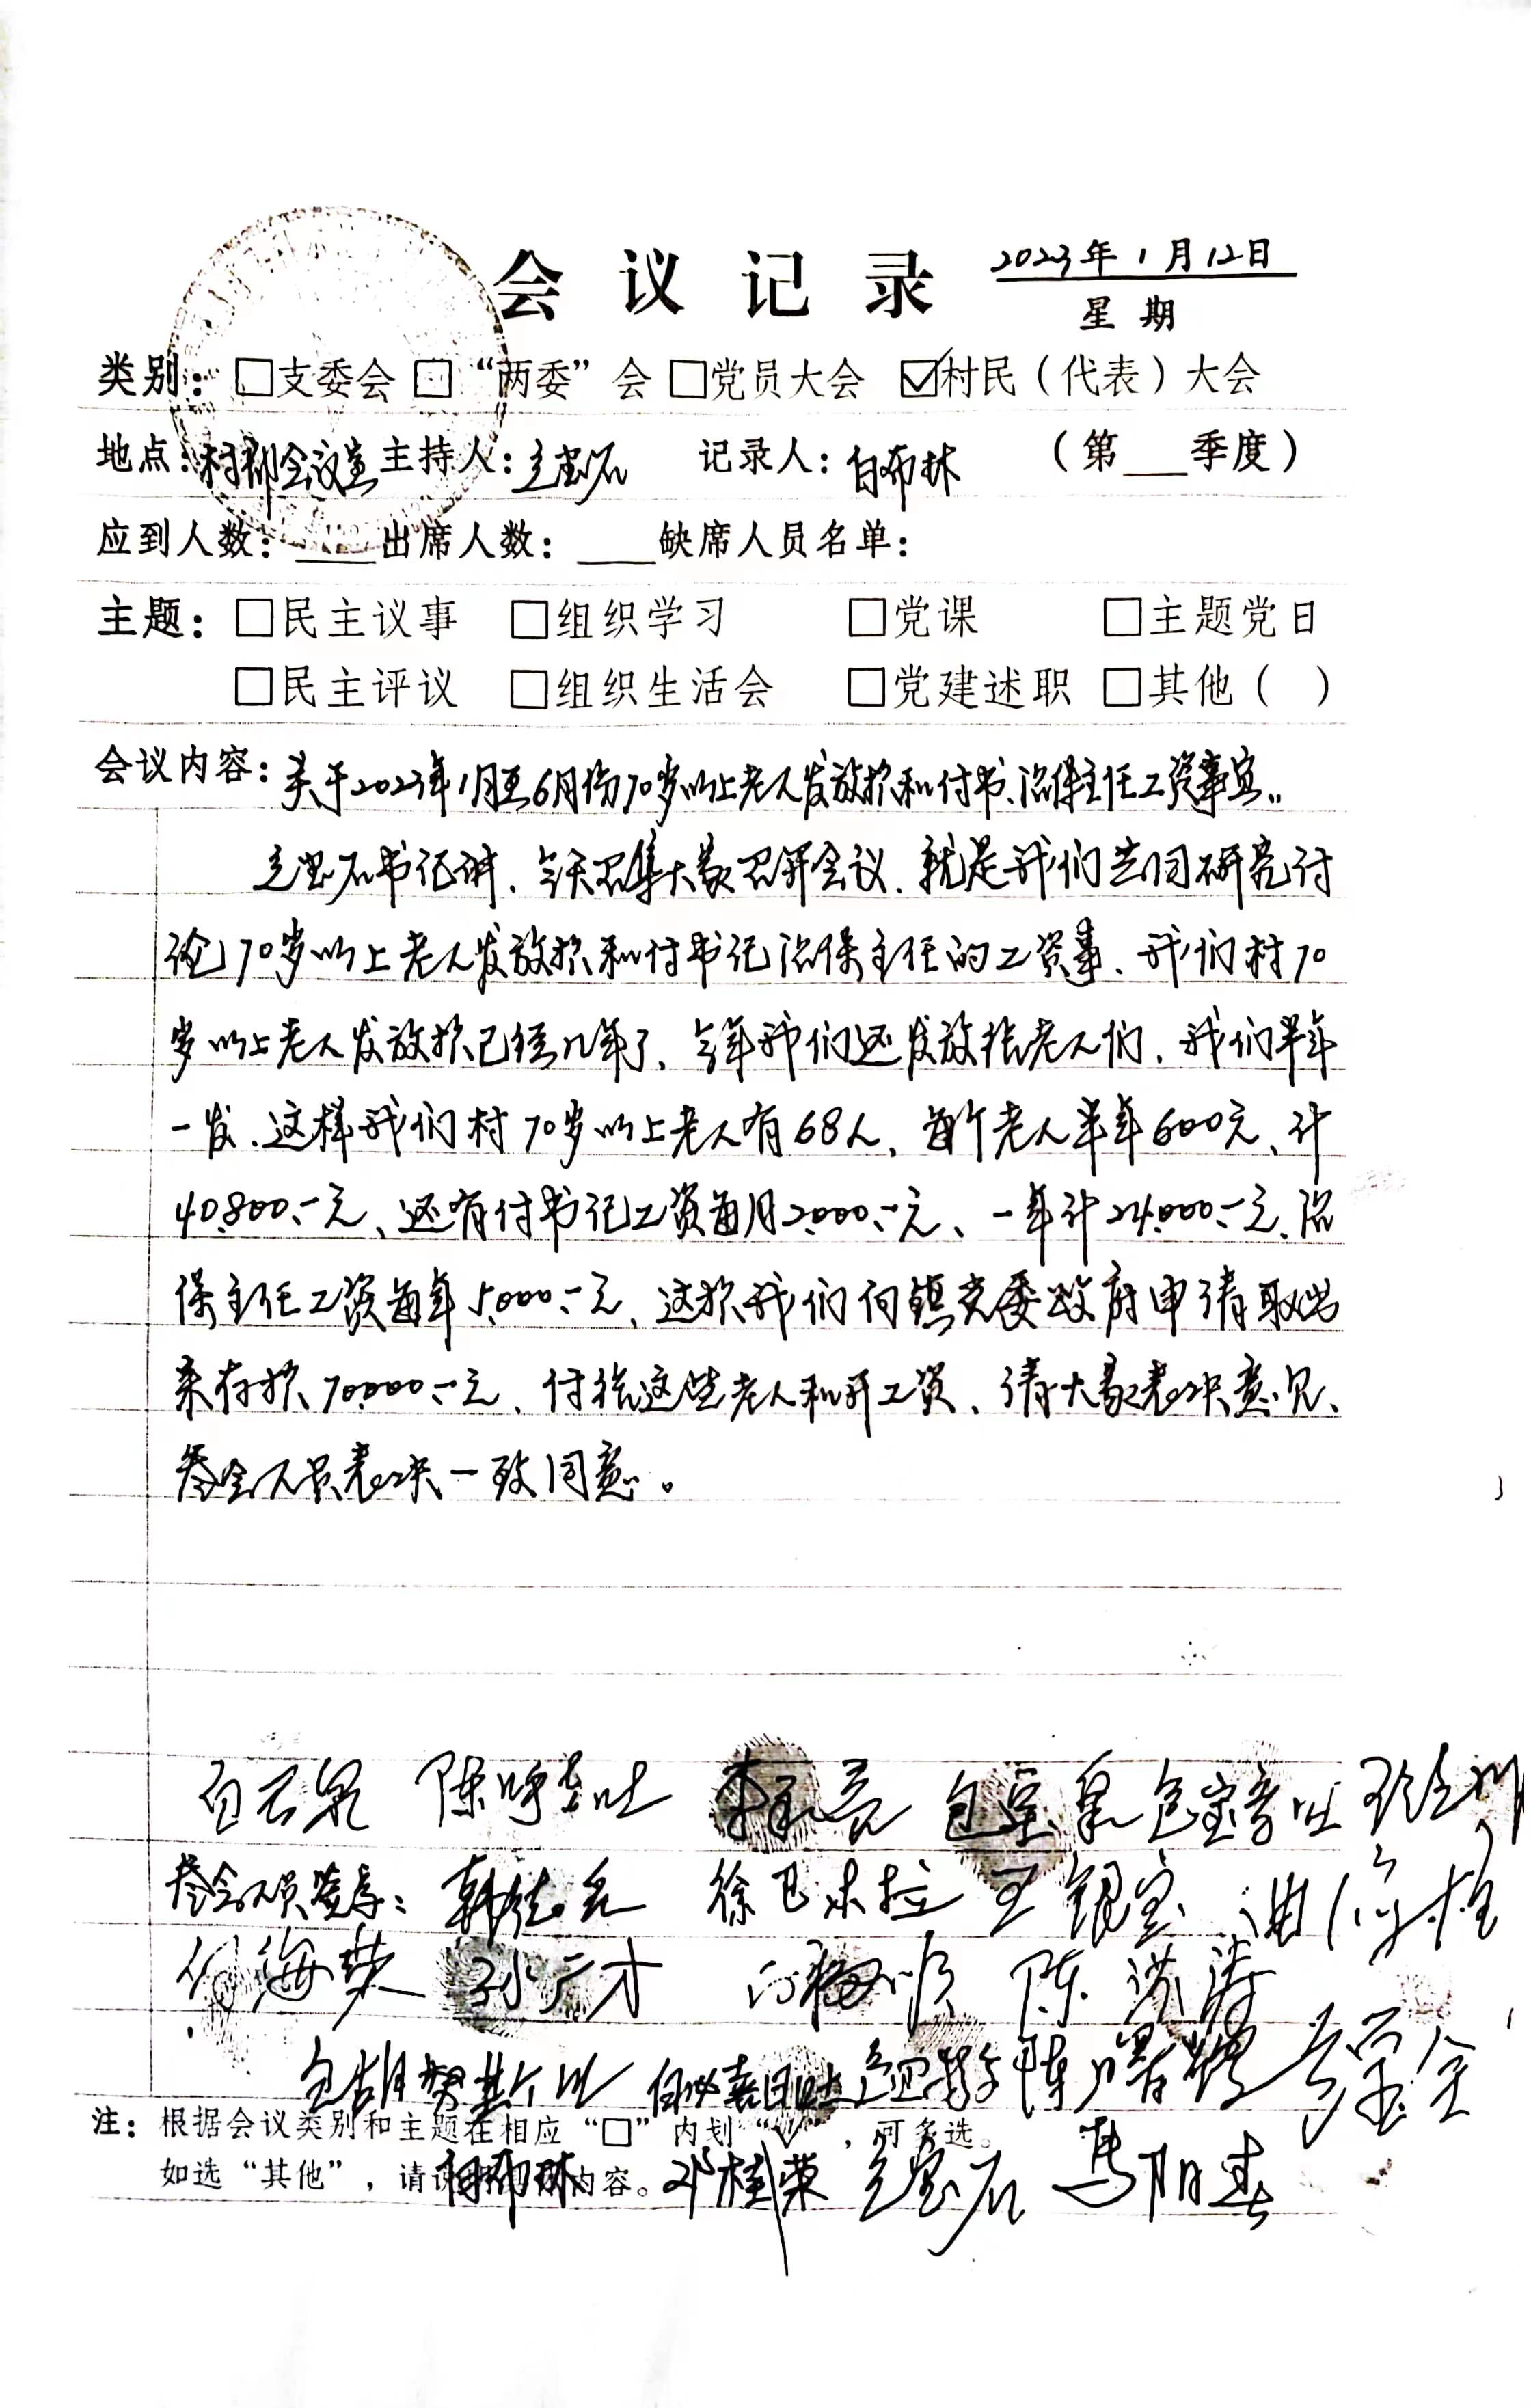 会议记录 2023年1月12日
星期
类别：□支委会 □“两委”会 □党员大会 ☑村民（代表）大会
地点：村部会议室 主持人：宝石 记录人：白布林 （第___季度）
应到人数：___出席人数：___缺席人员名单：
主题：□民主议事 □组织学习 □党课 □主题党日
□民主评议 □组织生活会 □党建述职 □其他（ ）
会议内容：关于2023年1月至6月份70岁以上老人发放款和付书、治保主任工资事宜。
宝石书记讲、今天召集大家召开会议、就是我们共同研究讨
论70岁以上老人发放款和付书记治保主任的工资事、我们村70
岁以上老人发放款已经几年了、今年我们还发放给老人们、我们半年
一发、这样我们村70岁以上老人有68人、每个老人半年600元、计
40.800.-元、还有付书记工资每月2000.-元、一年计24.000.-元、治
保主任工资每年5.000.-元、这款我们向镇党委政府申请取出
来存款70000.-元、付给这些老人和开工资、请大家表决意见、
参会人员表决一致同意。
白石泉 陈 吐 包宝泉 包宝音吐
参会人员签字： 韩 徐巴木拉 王银宝
何海荣 孙广才 白福顺 陈
包胡努斯吐 陈曙 宝金
注：根据会议类别和主题在相应“□”内划“√”，可多选。
如选“其他”，请 内容。 白布林 邓桂荣 宝石 马阳春